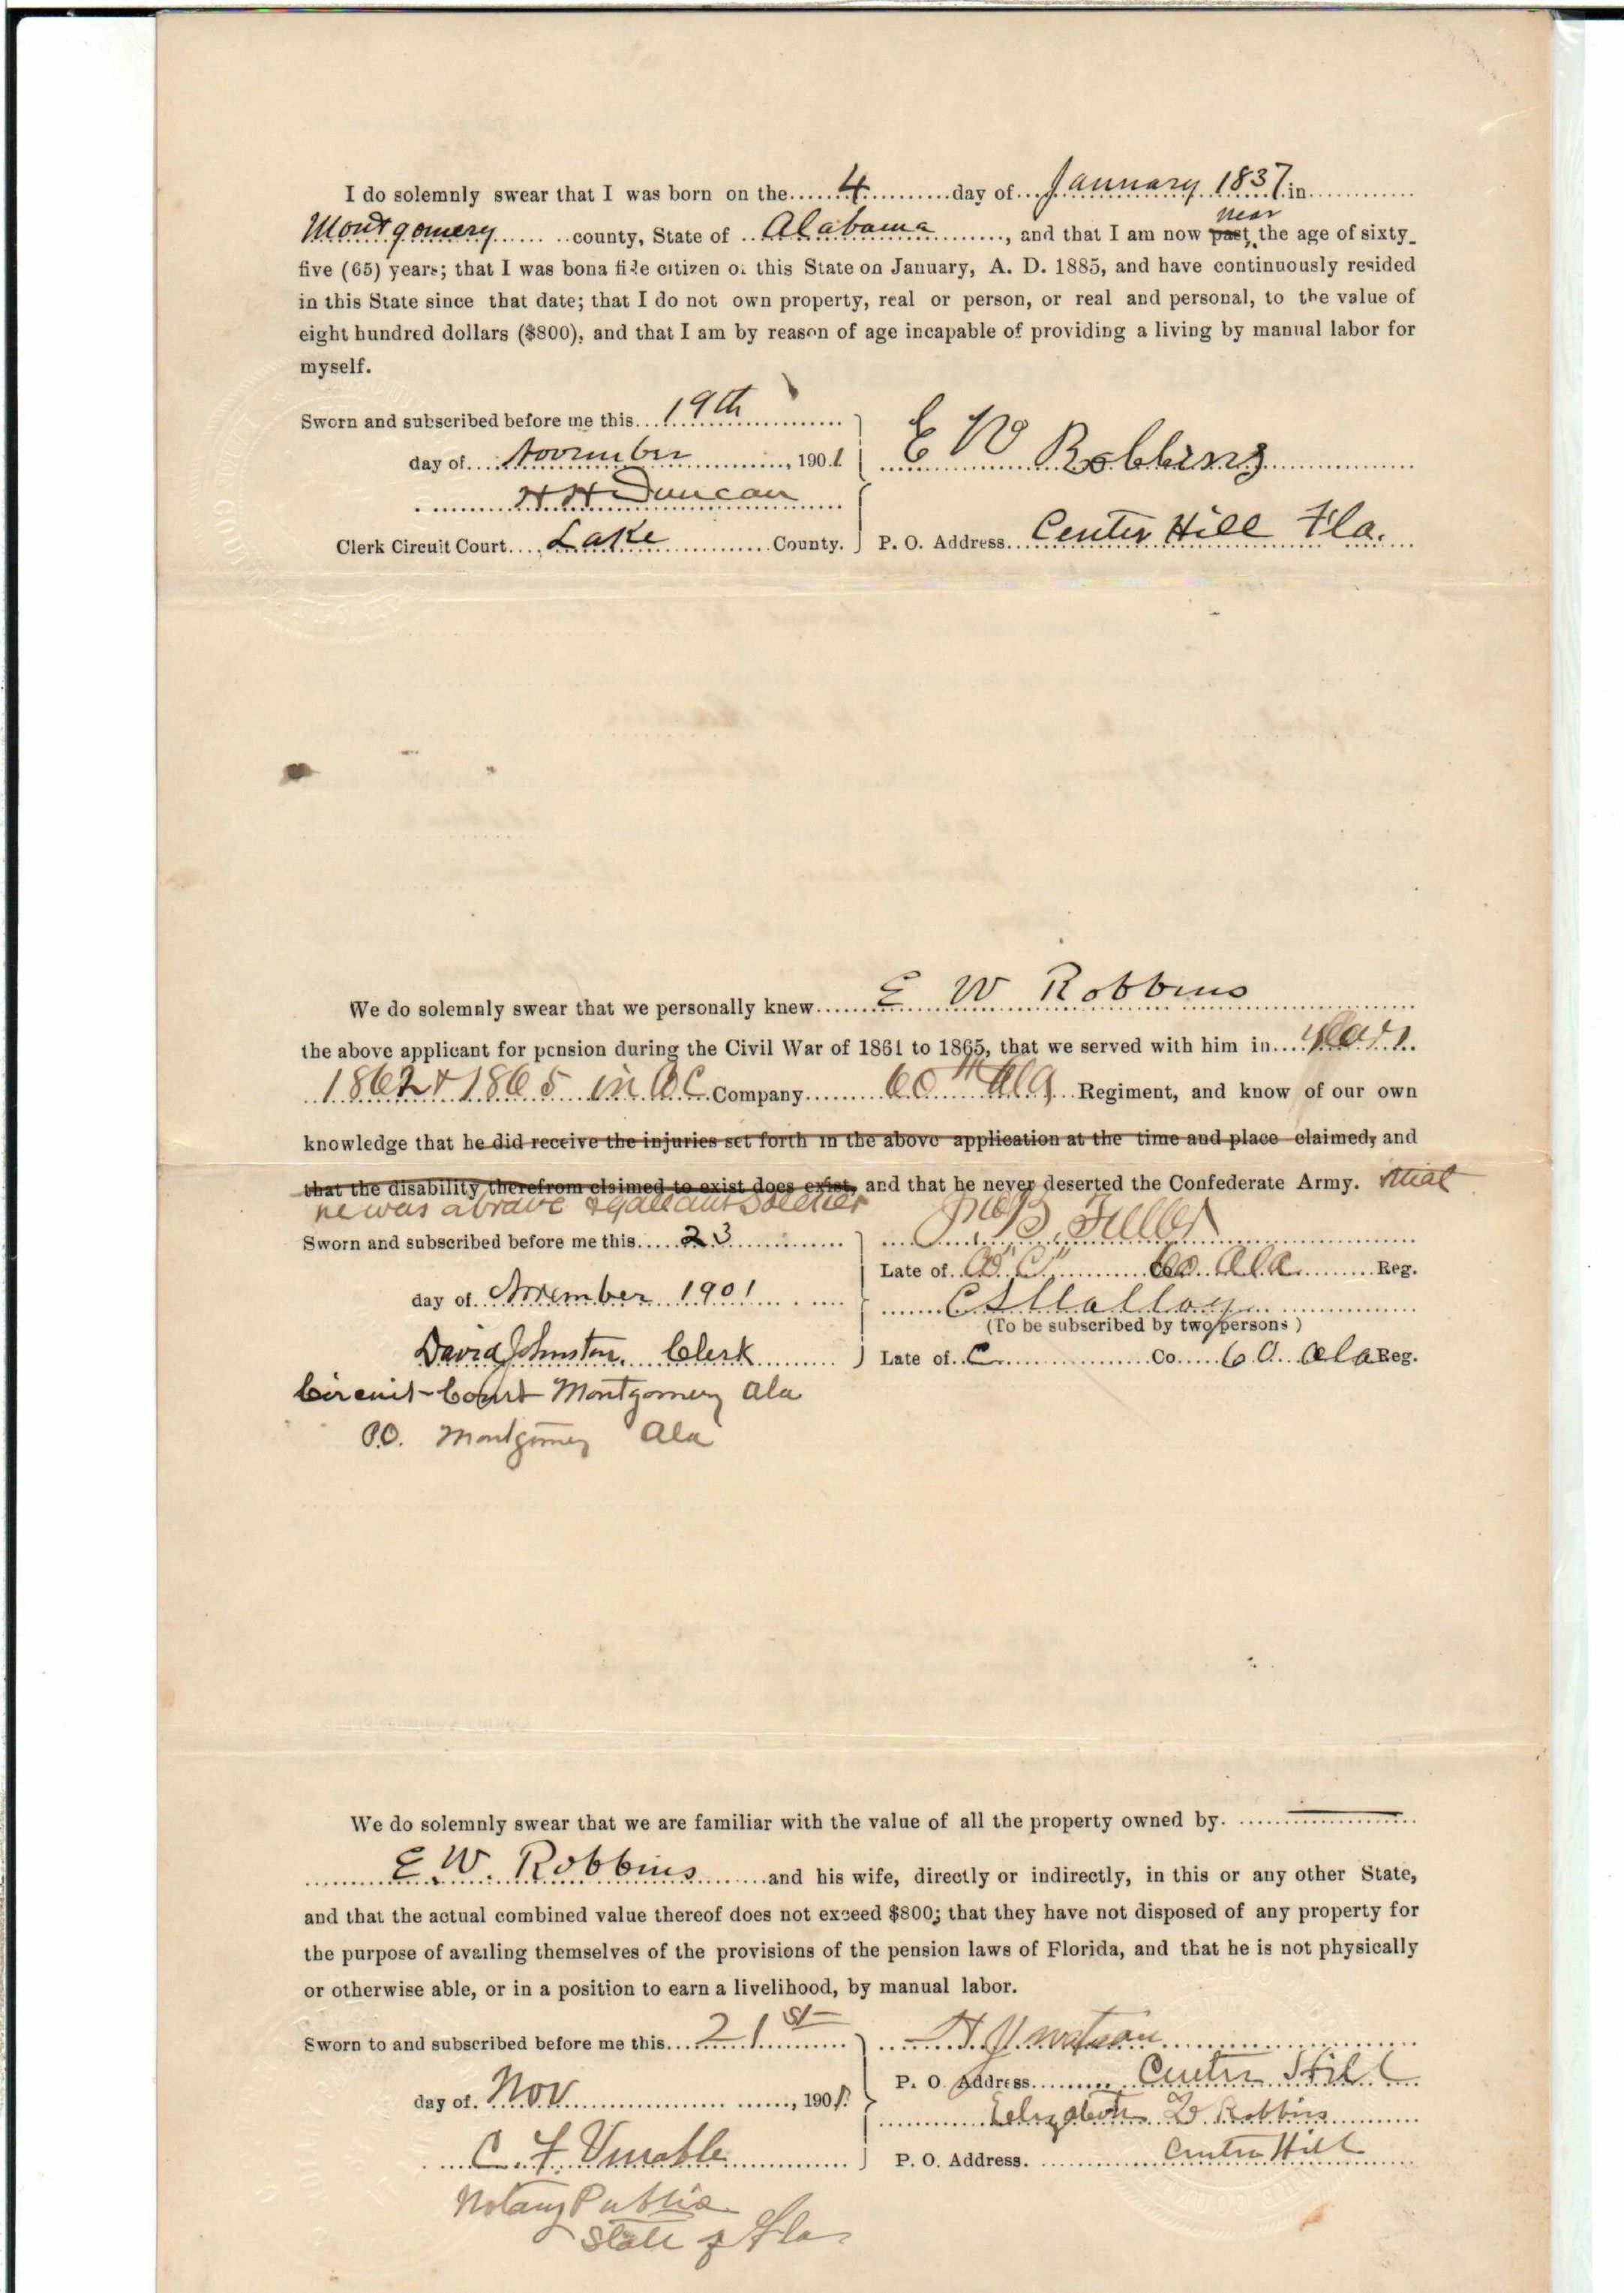 I do solemnly swear that I was born on the 4 day of January 1837 in
near
Montgomery county, State of Alabama, and that I am now past, the age of sixty-
five (65) years; that I was bona fide citizen of this State on January, A. D. 1885, and have continuously resided
in this State since that date; that I do not own property, real or person, or real and personal, to the value of
eight hundred dollars ($800), and that I am by reason of age incapable of providing a living by manual labor for
myself.
Sworn and subscribed before me this 19th
day of November, 1901 E W Robbins
H H Duncan
Clerk Circuit Court Lake County. P. O. Address Center Hill Fla.
We do solemnly swear that we personally knew E W Robbins
the above applicant for pension during the Civil War of 1861 to 1865, that we served with him in years
1862 & 1865 in Co C Company 60th Ala Regiment, and know of our own
knowledge that he did receive the injuries set forth in the above application at the time and place claimed, and
that the disability therefrom claimed to exist does exist, and that he never deserted the Confederate Army. that
he was a brave & gallant soldier
Sworn and subscribed before me this 23 Jno B. Fuller
Late of Co "C" Co 60 Ala Reg.
day of November 1901
C S Malloy
(To be subscribed by two persons)
David Johnston, Clerk Late of C Co 60 Ala Reg.
Circuit Court Montgomery Ala
P.O. Montgomery Ala
We do solemnly swear that we are familiar with the value of all the property owned by
E. W. Robbins and his wife, directly or indirectly, in this or any other State,
and that the actual combined value thereof does not exceed $800; that they have not disposed of any property for
the purpose of availing themselves of the provisions of the pension laws of Florida, and that he is not physically
or otherwise able, or in a position to earn a livelihood, by manual labor.
Sworn to and subscribed before me this 21st H. J. Watson
P. O. Address Center Hill
day of Nov, 1901.
Elizabeth Robbins
C. F. Venable P. O. Address. Center Hill
Notary Public
State of Fla